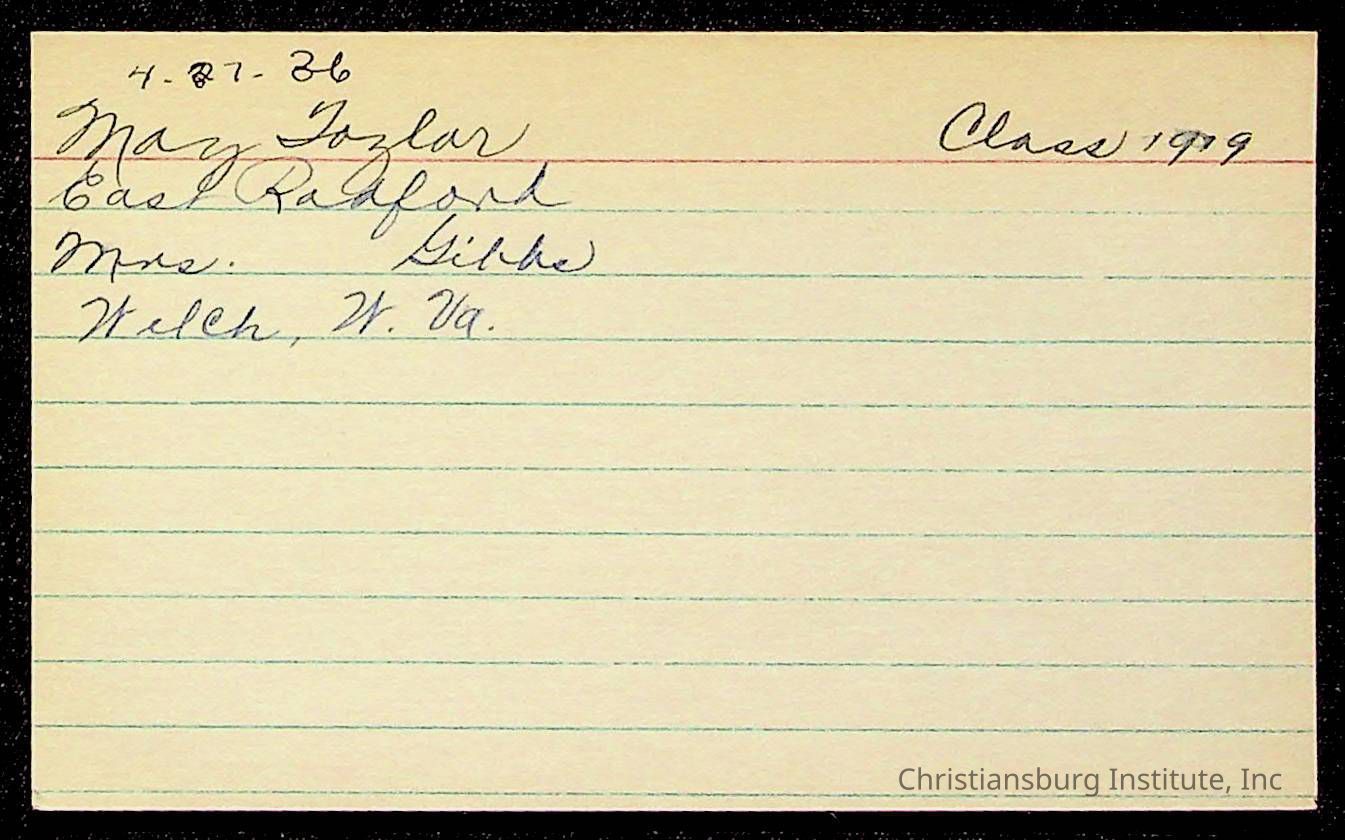 4-27-36
May Taylor Class 1919
East Radford
Mrs. Gibbs
Welch, W. Va.
Christiansburg Institute, Inc